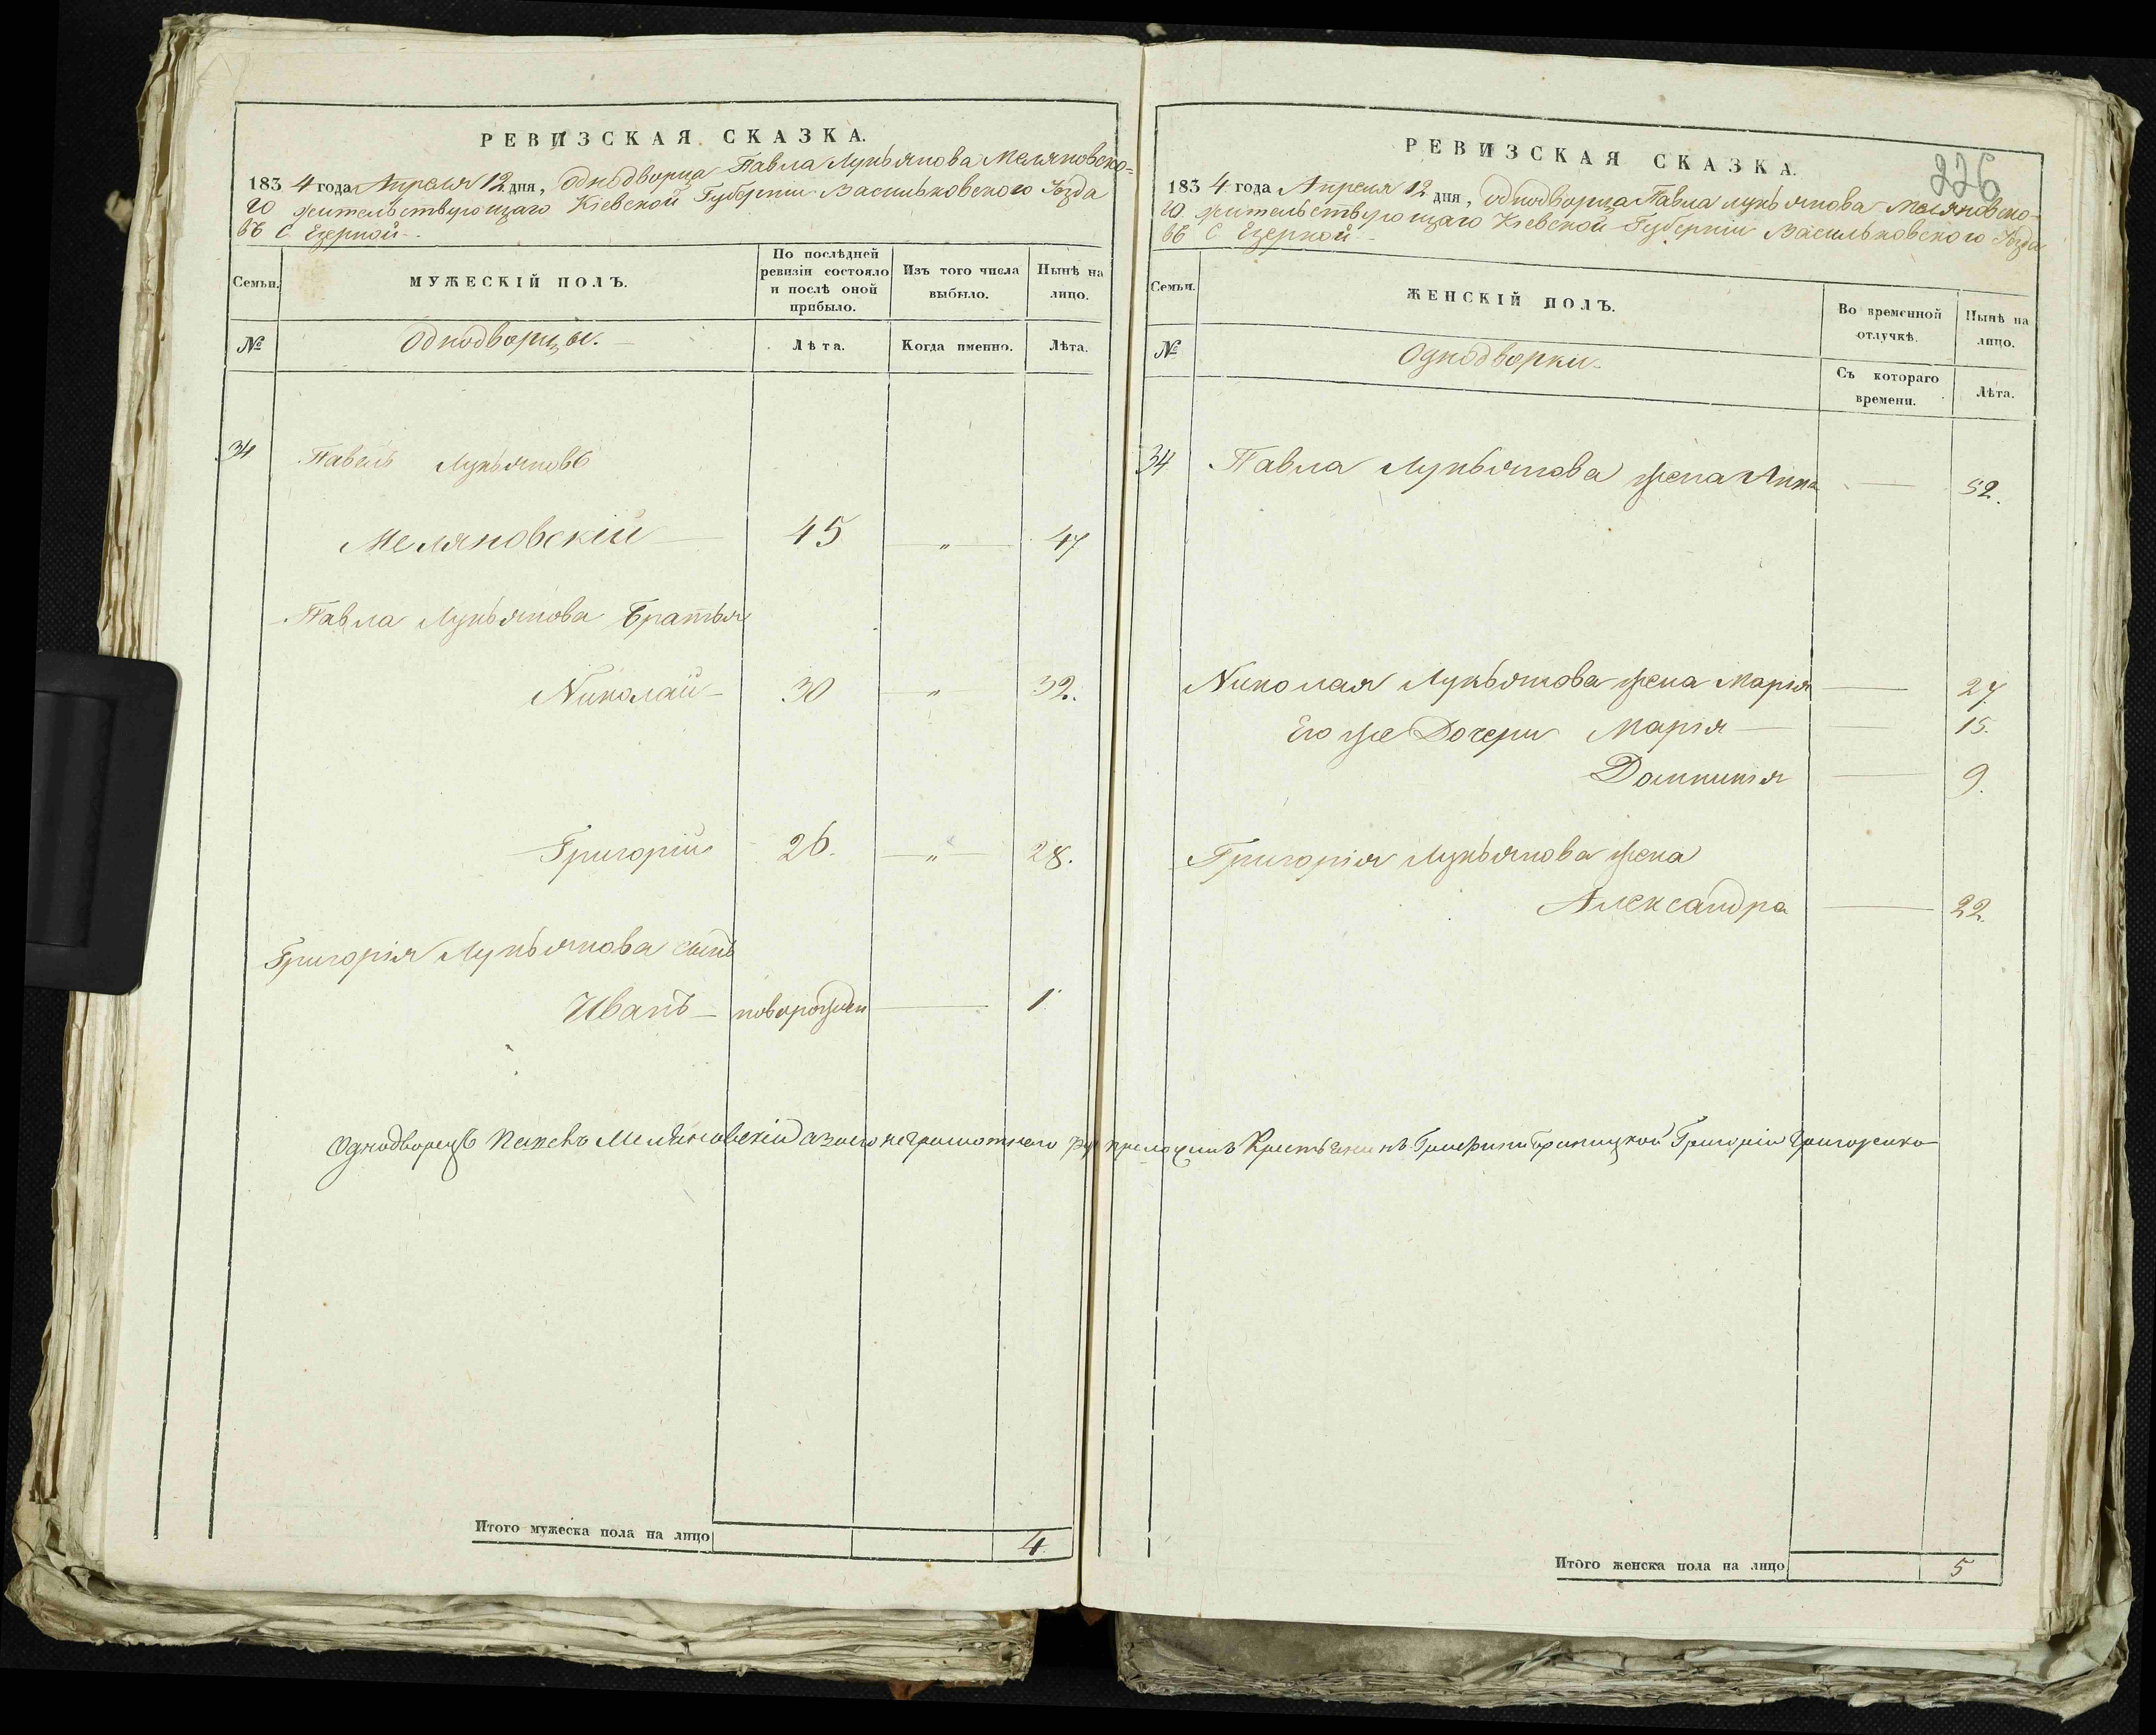 РЕВИЗСКАЯ СКАЗКА.
1834 года Апреля 12 дня, однодворца Павла Лукьянова Меляновска-
го жительствующаго Кіевской Губерніи Васильковского Уѣзда
въ с. Езерной
Семьи.
МУЖЕСКІЙ ПОЛЪ.
По послѣдней
ревизіи состояло
и послѣ оной
прибыло.
Изъ того числа
выбыло.
Нынѣ на
лицо.
№
Однодворцы.
Лѣта.
Когда именно.
Лѣта.
34 Павелъ Лукьяновъ
Меляновскій 45 „ 47
Павла Лукьянова Братья
Николай 30 „ 32.
Григорій 26. „ 28.
Григорія Лукьянова сынъ
Иванъ новорожден 1
Однодворецъ Павелъ Меляновскій а за его неграмотного рук приложилъ Крестьянинъ Григорій Григоренко
Итого мужеска пола на лицо 4.
226
РЕВИЗСКАЯ СКАЗКА.
1834 года Апреля 12 дня, однодворца Павла Лукьянова Меляновско-
го жительствующаго Кіевской Губерніи Васильковского Уѣзда
въ с. Езерной
Семьи.
ЖЕНСКІЙ ПОЛЪ.
Во временной
отлучкѣ.
Нынѣ на
лицо.
№
Однодворки.
Съ котораго
времени.
Лѣта.
34 Павла Лукьянова жена Анна 52.
Николая Лукьянова жена Марія 27.
Его же Дочери Марія 15.
Домникія 9.
Григорія Лукьянова жена
Александра 22.
Итого женска пола на лицо 5